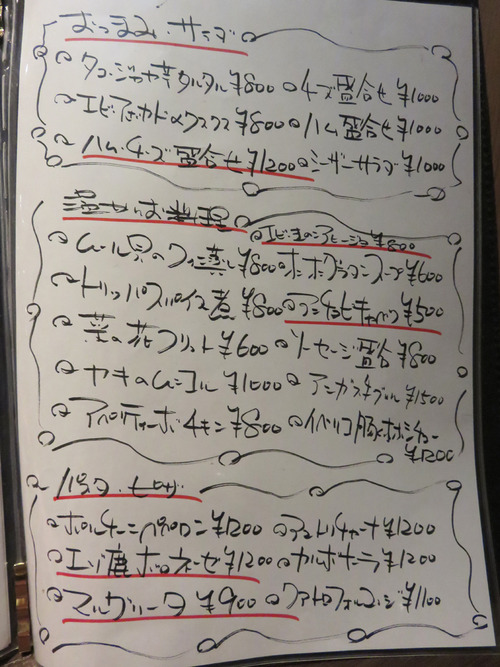 おつまみ・サラダ
タコとジャガ芋タルタル ¥800 チーズ盛合せ ¥1000
エビとアボカドのタルタル ¥800 ハム盛合せ ¥1000
ハム・チーズ盛合せ ¥1200 シーザーサラダ ¥1000
温かいお料理
エビのアヒージョ ¥800
ムール貝のワイン蒸し ¥800 スープ ¥600
トリッパスパイス煮 ¥800 アンチョビキャベツ ¥500
菜の花フリット ¥600 ソーセージ盛合 ¥800
¥1000 ¥1500
アペリティーボチキン ¥800 イベリコ豚
¥1200
パスタ・ピザ
ポルチーニペペロンチーノ ¥1200 アマトリチャーナ ¥1200
エゾ鹿ボロネーゼ ¥1200 カルボナーラ ¥1200
マルゲリータ ¥900 クアトロフォルマッジ ¥1100